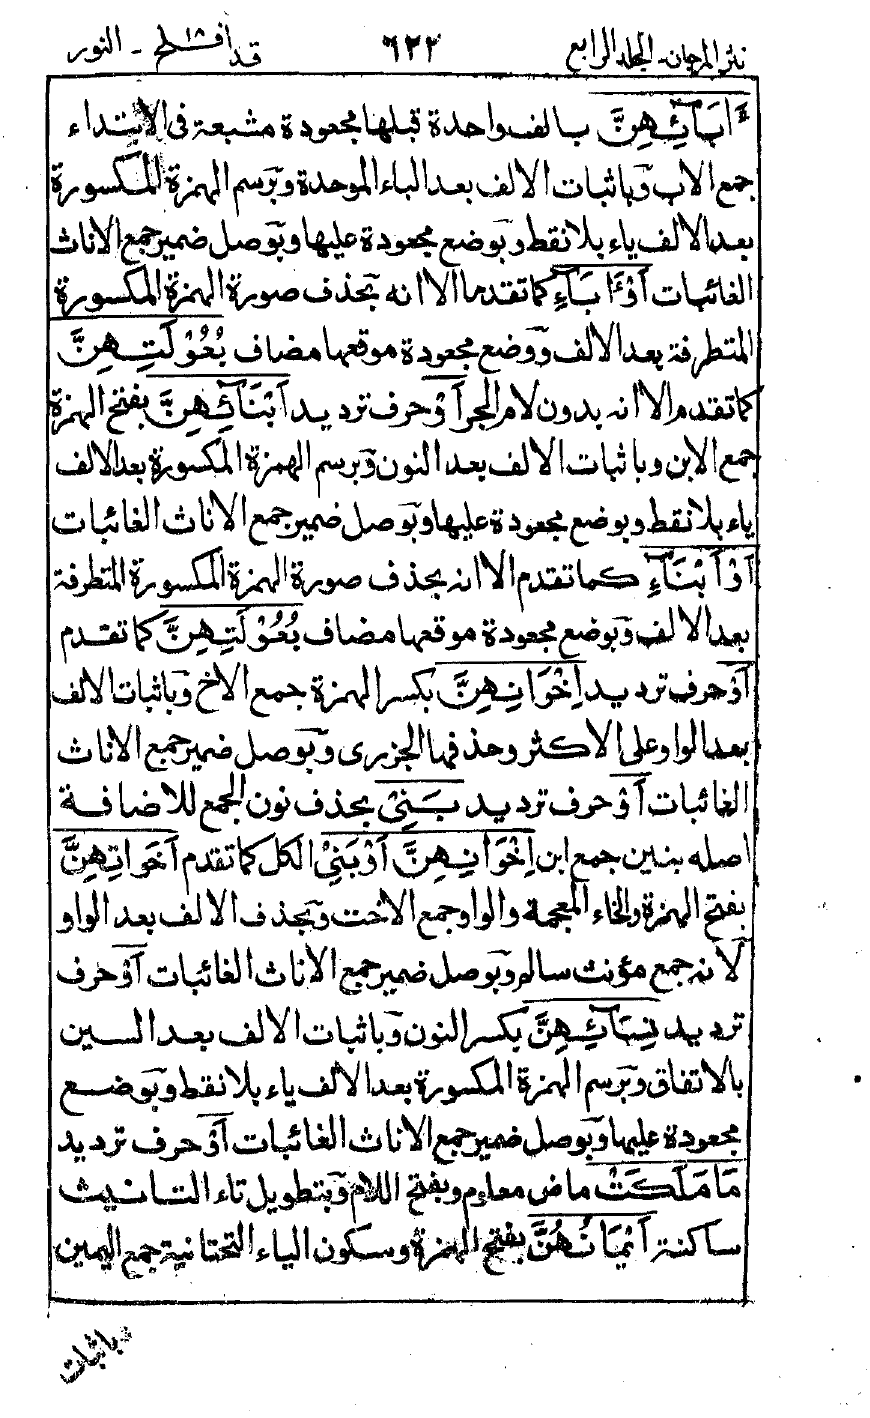 نثر المرجان۔ المجلد الرابع ٦٢٢ قد افلح ١٨ ۔ النور
ءَابَآئِهِنَّ بالف واحدة قبلها مجعودة مشبعة فى الابتداء
جمع الاب وباثبات الالف بعد الباء الموحدة وبرسم الهمزة المكسورة
بعد الالف ياء بلا نقط وبوضع مجعودة عليها وبوصل ضمير جمع الاناث
الغائبات اَوْ ءَابَآءِ كما تقدما الا انه بحذف صورة الهمزة المكسورة
المتطرفة بعد الالف ووضع مجعودة موقعها مضاف بُعُوْلَتِهِنَّ
كما تقدم الا انه بدون لام الجر اَوْ حرف ترديد اَبْنَآئِهِنَّ بفتح الهمزة
جمع الابن وباثبات الالف بعد النون وبرسم الهمزة المكسورة بعد الالف
ياء بلا نقط وبوضع مجعودة عليها وبوصل ضمير جمع الاناث الغائبات
اَوْ اَبْنَآءِ كما تقدم الا انه بحذف صورة الهمزة المكسورة المتطرفة
بعد الالف وبوضع مجعودة موقعها مضاف بُعُوْلَتِهِنَّ كما تقدم
اَوْ حرف ترديد اِخْوَانِهِنَّ بكسر الهمزة جمع الاخ وباثبات الالف
بعد الواو على الاكثر وحذفها الجزرى وبوصل ضمير جمع الاناث
الغائبات اَوْ حرف ترديد بَنِىْ بحذف نون الجمع للاضافة
اصله بنين جمع ابن اِخْوَانِهِنَّ اَوْ بَنِىْ الكل كما تقدم اَخَوَاتِهِنَّ
بفتح الهمزة والخاء المعجمة والواو جمع الاخت وبحذف الالف بعد الواو
لانه جمع مؤنث سالم وبوصل ضمير جمع الاناث الغائبات اَوْ حرف
ترديد نِسَآئِهِنَّ بكسر النون وباثبات الالف بعد السين
بالاتفاق وبرسم الهمزة المكسورة بعد الالف ياء بلا نقط وبوضع
مجعودة عليها وبوصل ضمير جمع الاناث الغائبات اَوْ حرف ترديد
مَا مَلَكَتْ ماض معلوم وبفتح اللام وبتطويل تاء التانيث
ساكنة اَيْمَانُهُنَّ بفتح الهمزة وسكون الياء التحتانية جمع اليمين
وباثبات